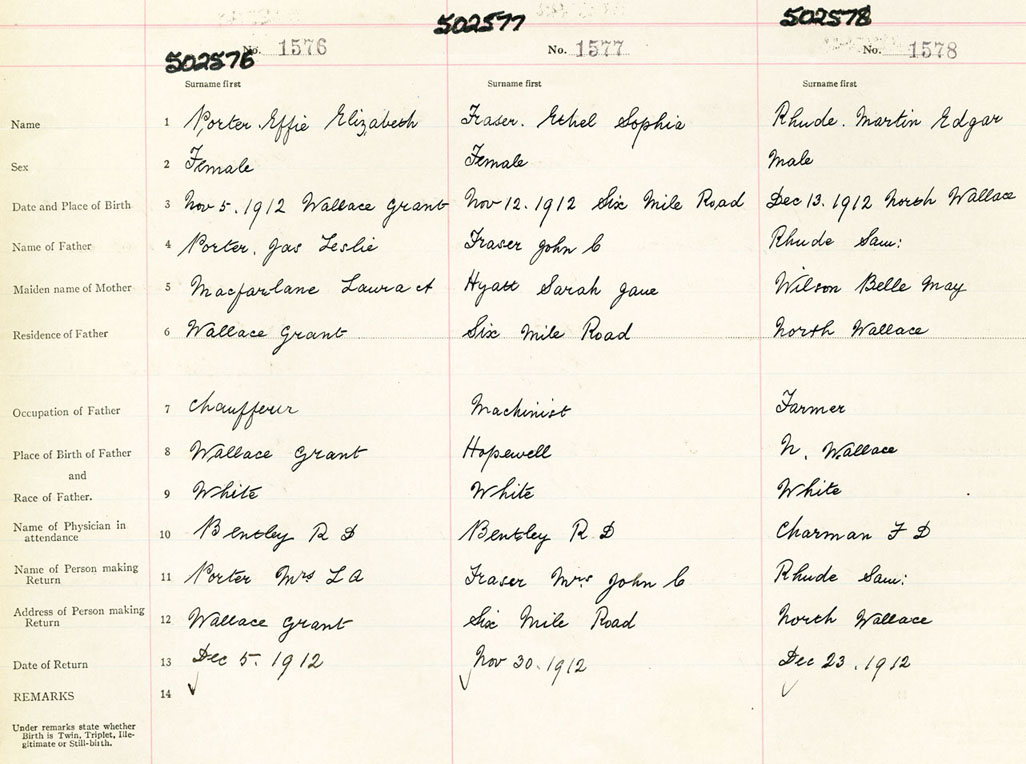 502576 502577 502578
No. 1576 No. 1577 No. 1578
Surname first Surname first Surname first
Name 1 Porter. Effie Elizabeth Fraser. Ethel Sophia Rhude. Martin Edgar
Sex 2 Female Female Male
Date and Place of Birth 3 Nov 5. 1912 Wallace Grant Nov 12. 1912 Six Mile Road Dec 13. 1912 North Wallace
Name of Father 4 Porter. Jas Leslie Fraser John C Rhude Sam:
Maiden name of Mother 5 Macfarlane Laura A Hyatt Sarah Jane Wilson Belle May
Residence of Father 6 Wallace Grant Six Mile Road North Wallace
Occupation of Father 7 Chauffeur Machinist Farmer
Place of Birth of Father 8 Wallace Grant Hopewell N. Wallace
and
Race of Father. 9 White White White
Name of Physician in
attendance 10 Bentley R D Bentley R. D Charman F D
Name of Person making
Return 11 Porter Mrs L A Fraser Mrs John C Rhude Sam:
Address of Person making
Return 12 Wallace Grant Six Mile Road North Wallace
Date of Return 13 Dec 5. 1912 Nov 30. 1912 Dec 23. 1912
REMARKS 14 ✓ ✓ ✓
Under remarks state whether
Birth is Twin, Triplet, Ille-
gitimate or Still-birth.